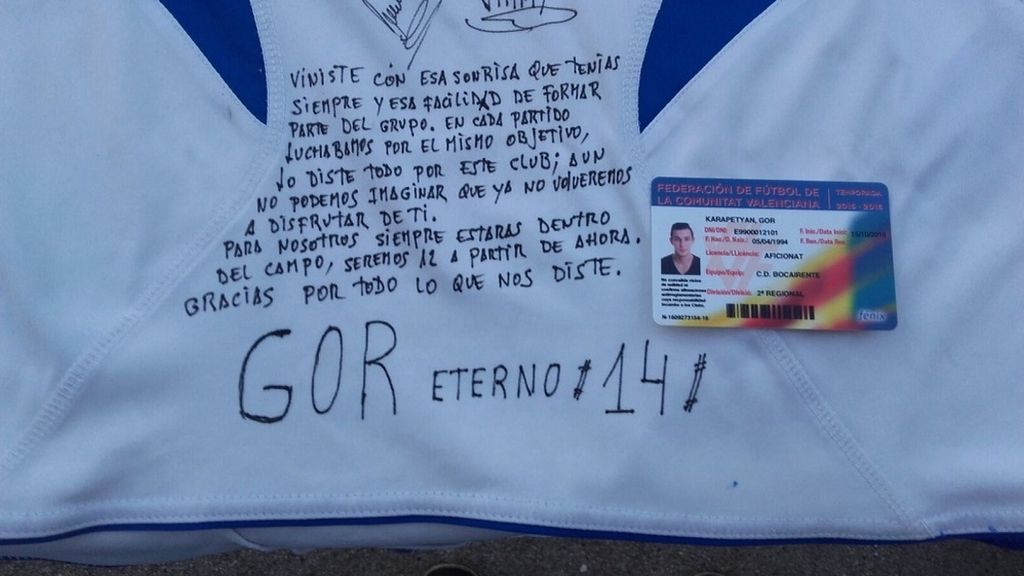 VINISTE CON ESA SONRISA QUE TENIAS
SIEMPRE Y ESA FACILIDAD DE FORMAR
PARTE DEL GRUPO. EN CADA PARTIDO
LUCHABAMOS POR EL MISMO OBJETIVO,
LO DISTE TODO POR ESTE CLUB; AUN
NO PODEMOS IMAGINAR QUE YA NO VOLVEREMOS
A DISFRUTAR DE TI.
PARA NOSOTROS SIEMPRE ESTARAS DENTRO
DEL CAMPO, SEREMOS 12 A PARTIR DE AHORA.
GRACIAS POR TODO LO QUE NOS DISTE.
GOR ETERNO #14#
FEDERACIÓN DE FÚTBOL DE
LA COMUNITAT VALENCIANA
TEMPORADA
2015 - 2016
KARAPETYAN, GOR
DNI/DNI: E9900012101
F. Inic./Data Inici: 15/10/2015
F. Nac./D. Naix.: 05/04/1994
Licencia/Llicència: AFICIONAT
Equipo/Equip: C.D. BOCAIRENTE
División/Divisió: 2ª REGIONAL
fénix